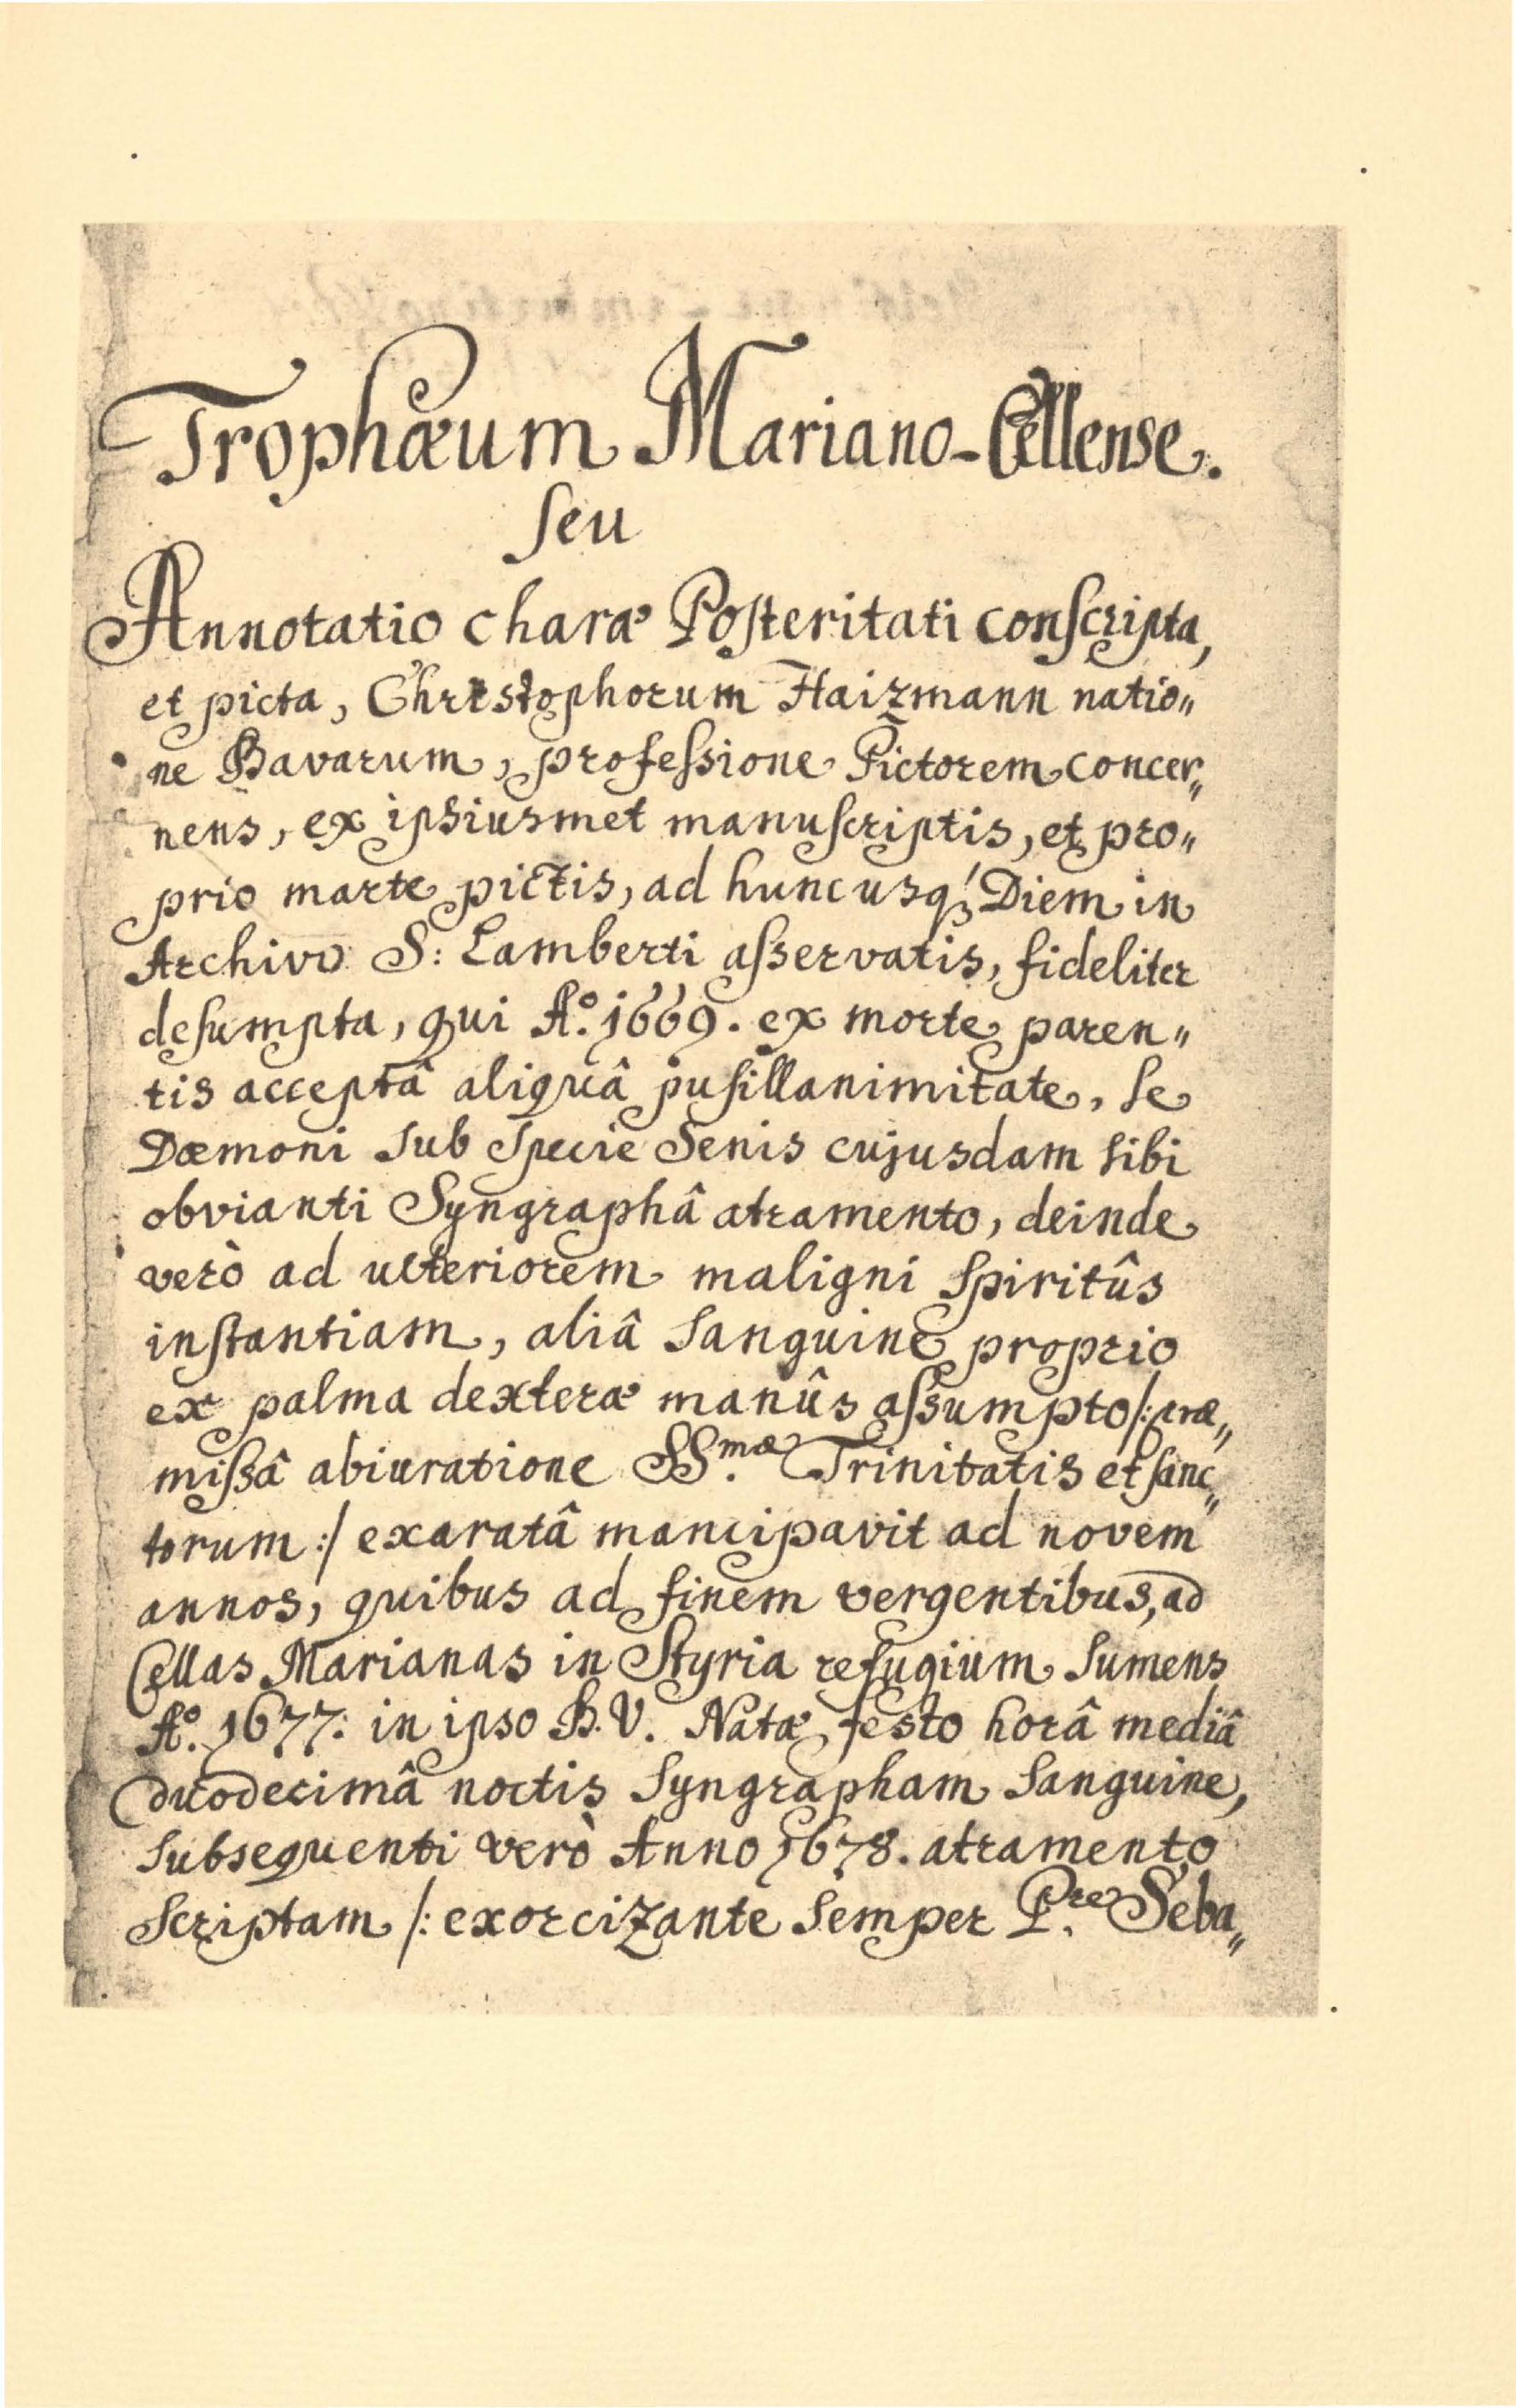 Trophæum Mariano-Cellense.
ſeu
Annotatio charæ Poſteritati conſcripta,
et picta, Christophorum Haizmann natio„
ne Bavarum, profeſsione Pictorem concer„
nens, ex ipsiusmet manuſcriptis, et pro„
prio marte pictis, ad huncusq́ꝫ Diem in
Archivo S: Lamberti aſservatis, fideliter
deſumpta, qui Aº. 1669. ex morte paren„
tis acceptâ aliquâ puſillanimitate, ſe
Dæmoni ſub ſpecie Senis cujusdam ſibi
obvianti Syngraphâ atramento, deinde
verò ad ulteriorem maligni ſpiritûs
inſtantiam, aliâ ſanguine proprio
ex palma dexteræ manûs aſsumpto /: præ„
miſsâ abiuratione SS.mæ Trinitatis et ſanc„
torum :/ exaratâ mancipavit ad novem
annos, quibus ad finem vergentibus, ad
Cellas Marianas in Styria refugium ſumens
Aº. 1677: in ipso B. V. Natæ festo horâ mediâ
duodecimâ noctis ſyngrapham ſanguine,
ſubsequenti verò Anno 1678. atramento
ſcriptam /: exorcizante ſemper P.re Seba„